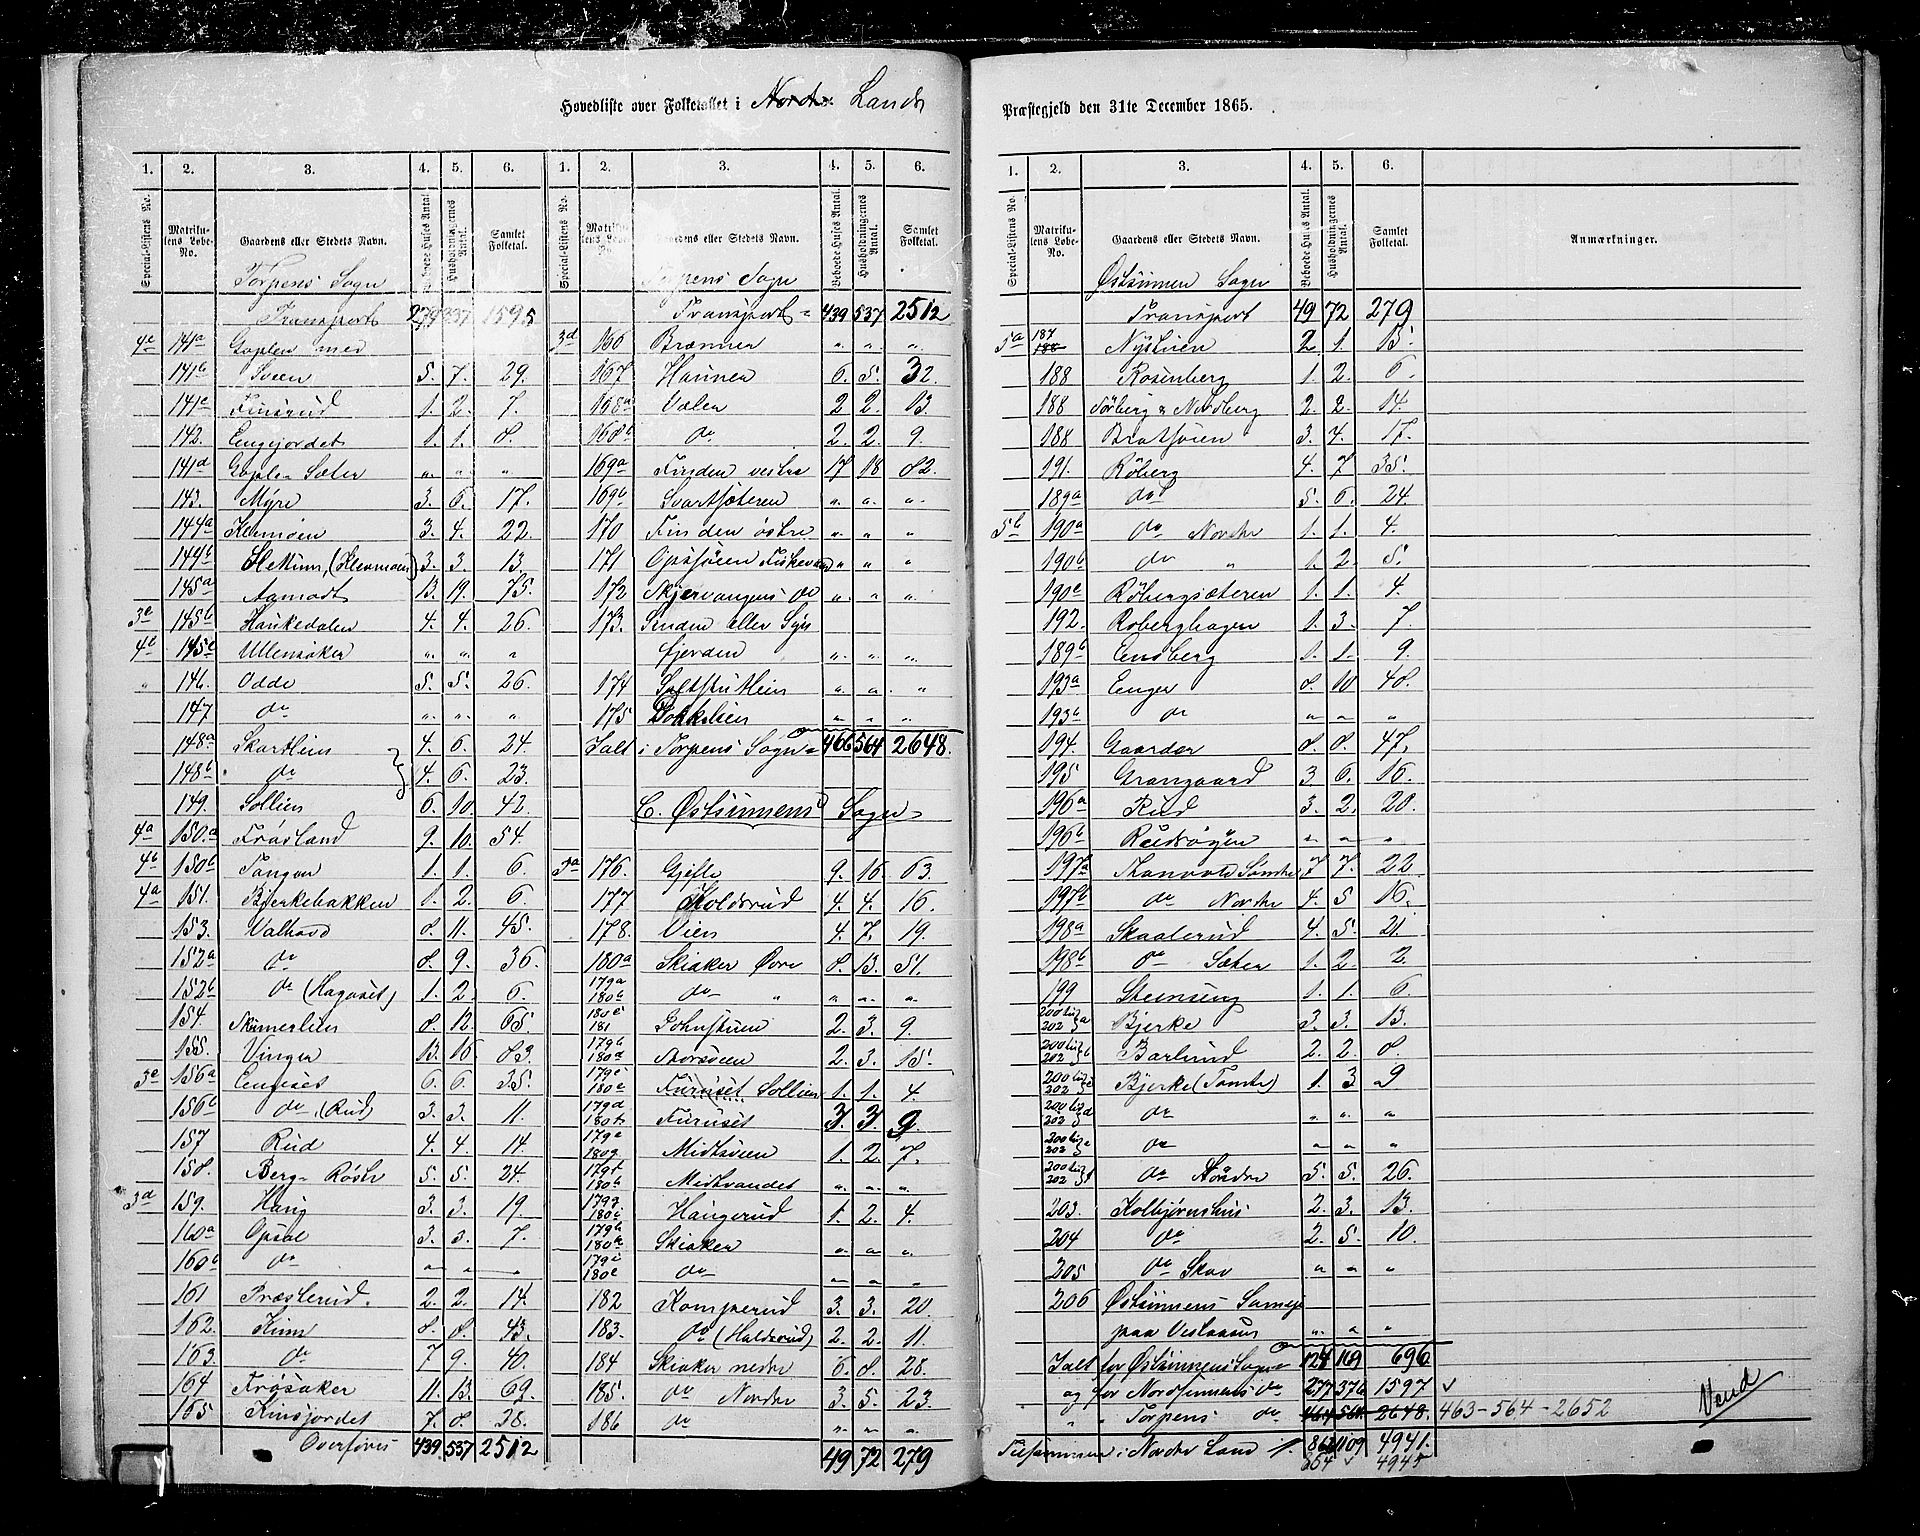 Hovedliste over Folketallet i Nordre Lands
Præstegjeld den 31te December 1865.
1. 2. 3. 4. 5. 6.
Special-Listens No. Matrikulens Løbe-No. Gaardens eller Stedets Navn. Beboede Huses Antal. Husholdningernes Antal. Samlet Folketal.
Torpens Sogn
Transport 279 337 1595
4c 141a Goplen med
141b Sveen 5. 7. 29.
141c Finsrud 1. 2. 7.
142. Engejordet 1. 1. 8.
141d Goplen Sæter " " "
143. Myre 3. 6. 17.
144a Klemoen 3. 4. 22.
144b 3. 3. 13.
145a Aamodt 13. 19. 75.
3e 145b Haukedalen 4. 4. 26.
4c 145c Ullensaker " " "
" 146. Odde 5. 5. 26.
147 do " " "
148a Skartlien 4. 6. 24.
148b do 4. 6. 23.
149. Sollien 6. 10. 42.
4a 150.a Frøsland 9. 10. 54.
4b 150b Tangen 1. 1. 6.
4a 151. Bjerkebakken 1. 2. 6.
153. Valhovd 8. 11. 45.
152a do 8. 9. 36.
152b do (Hagaset) 1. 2. 6.
154. Nimerlien 8. 12. 65.
155. Vinger 13. 16. 83.
3e 156a Engeset 6. 6. 35.
156b do (Rud) 3. 3. 11.
157 Rud 4. 4. 14.
158. Berg-Røste 5. 5. 24.
3d 159. Haug 3. 3. 19.
160a Opsal 3. 3. 7.
160b do " " "
161 Præsterud. 2. 2. 14.
162. Kinn 8. 8. 43.
163. do 7 9. 40.
164 Frøsaker 11. 13. 69.
165. Kinsjordet 7. 8. 38.
Overføres 439 537 2512
1. 2. 3. 4. 5. 6.
Special-Listens No. Matrikulens Løbe-No. Gaardens eller Stedets Navn. Beboede Huses Antal. Husholdningernes Antal. Samlet Folketal.
Torpens Sogn
Transport 439 537 2512
3d 166 Brænna " " "
167 Haugen 6. 5. 32.
168a Velen 2 2. 13.
168b do 2. 2. 9.
169a Finden vestre 17 18 82.
169b Svartsæteren " " "
170 Finden østre " " "
171 Opsjøen Fiskevand " " "
172 Skjervangens do " " "
173. Sinden eller Syn
fjorden " " "
174 " " "
175 Dokkelien " " "
Ialt i Torpens Sogn 466 564 2648.
C. Østsinnens Sogn
5a 176. Gjefle 9. 16. 63.
177 Koldsrud 4. 4. 16.
178. Vien 4. 7. 19.
180a Skiaker Øvre 8. 13. 51.
179a 180b do " " " "
180c 181 2. 3. 9.
179b 180d Storsveen 2. 3. 15.
179c 180e Furuset Sollien 1. 1. 4.
179d 180f Furuset 3. 3. 9.
179e 180g Midtsveen 1. 2. 7.
179f 180h Midtvandet " " "
179g 180i Haugerud 1. 2. 4.
179h 180k Skiaker " " "
179i 180l do " " "
182 Komperud 3. 3. 20.
183. do (Haldsrud) 2. 2. 11.
184 Skiaker nedre 6. 8. 28.
185. do Nordre 3. 5. 23.
186 do " " "
49 72 279
1. 2. 3. 4. 5. 6.
Special-Listens No. Matrikulens Løbe-No. Gaardens eller Stedets Navn. Beboede Huses Antal. Husholdningernes Antal. Samlet Folketal. Anmærkninger.
Østsinnen Sogn
Transport 49 72 279
5a 187 186 Nystuen 2 1. 15.
188 Rosenberg 1. 2. 6.
188 Sørberg & Nordberg 2. 2. 14.
188 Bratsveen 3. 4. 17.
191. Røberg 4. 7 35.
189a do 5. 6. 24.
5b 190a do Nordre 1. 1. 4.
190b do " 1. 2 5.
190c Røbergsæteren 1. 1. 4.
192. Roberghagen 1. 3. 7.
189b Ensberg 1. 1. 9.
193a Enger 8. 10 48.
193b do " " "
194. Gaarder 8. 8. 47.
195 Grangaard 3 6. 16.
196a Rud 3. 2. 20.
196b " " "
197a Thonvold Søndre 7. 7. 22
197b do Nordre 4. 5 16.
198a Skaalerud 4. 5. 21.
198b do Sæter 1. 2. 2
199 Steinseng 1. 1. 6.
200 lig 202 a Bjerke 3. 3. 13.
200 lig 202 b Barlund 2. 2. 8.
200 lig 202 c Bjerke (Tomte) 1. 3 9
200 lig 202 d do " " "
200 lig 202 e do " " "
200 lig 202 f do Nordre 5. 5. 26.
203. Kolbjørnshus 2. 3. 13.
204 do 2. 5. 10.
205 do Skov " " "
206 Østsinnens Sameje
paa Vestaasen " " "
Ialt for Østsinnens Sogn 124 169 696
og for Nordsinnens do 277 376 1597 ✓
" " Torpens do 464 564. 2648. 463-564-2652
Tilsammen i Nordre Land 1109 4941.
864 ✓ 4945
Vend